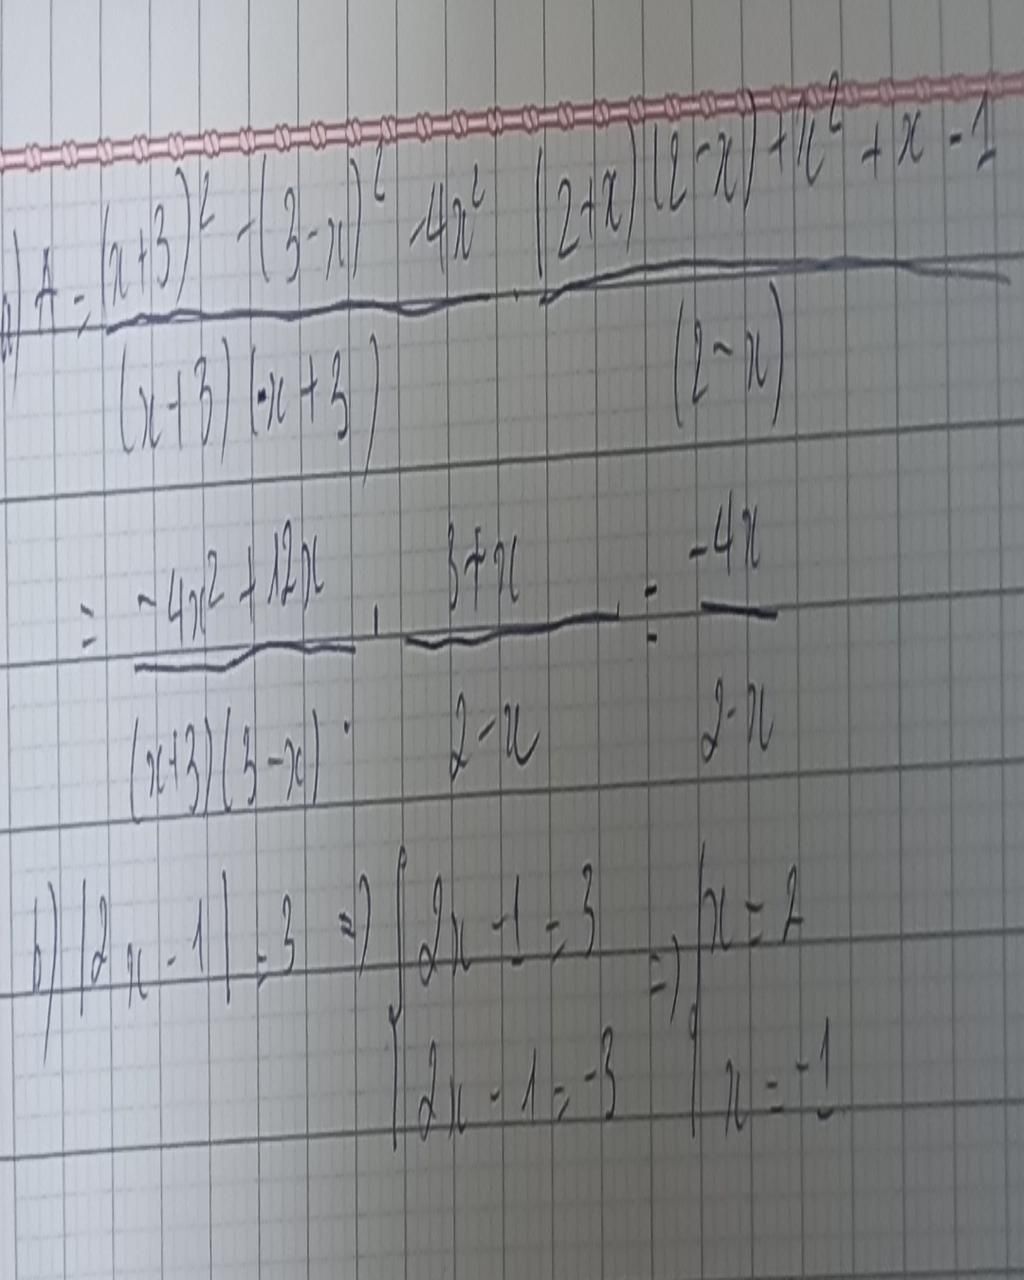 a) A = \frac{(x+3)^2 - (3-x)^2 - 4x^2}{(x+3)(-x+3)} \cdot \frac{(2+x)(2-x) + x^2 + x - 1}{(2-x)}
= \frac{-4x^2 + 12x}{(x+3)(3-x)} \cdot \frac{3+x}{2-x} = \frac{-4x}{2-x}
b) |2x - 1| = 3 => [2x - 1 = 3 => [x = 2
[2x - 1 = -3 [x = -1